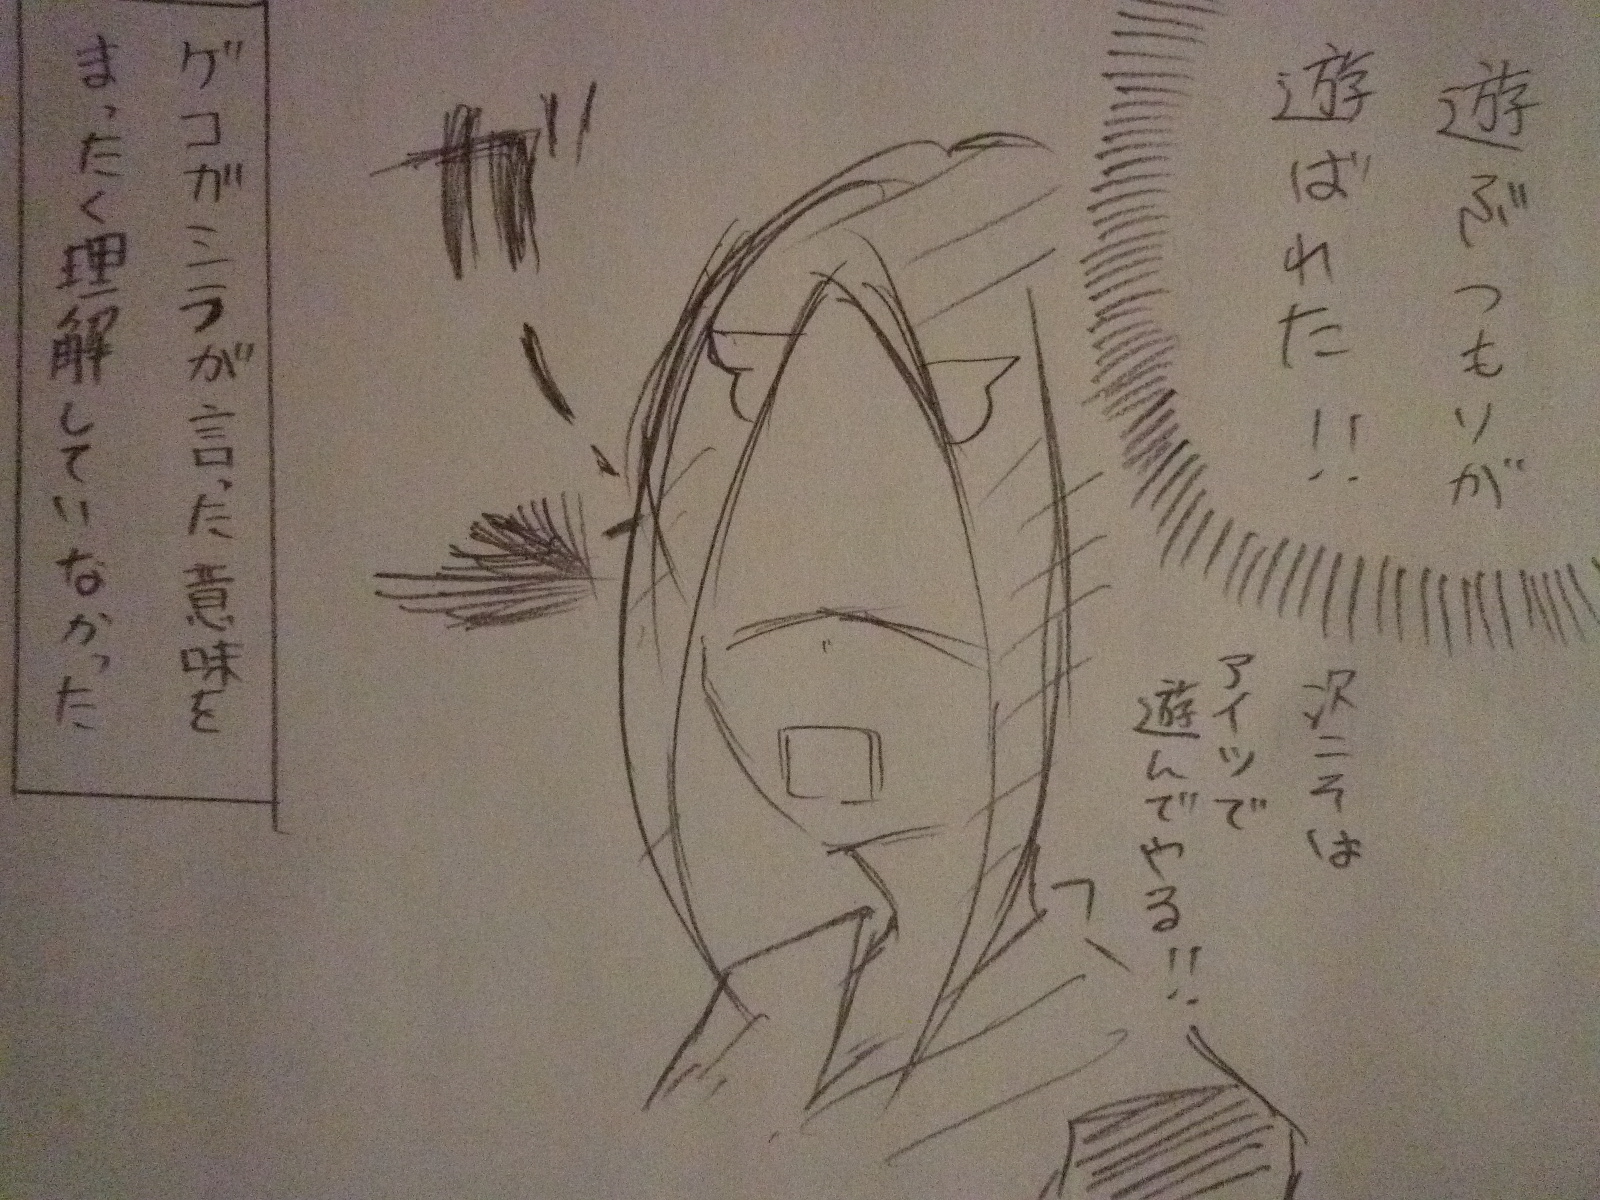 遊ぶつもりが
遊ばれた!!
次こそは
アイツで
遊んでやる!!
ガーン
ゲコガシラが言った意味を
まったく理解していなかった